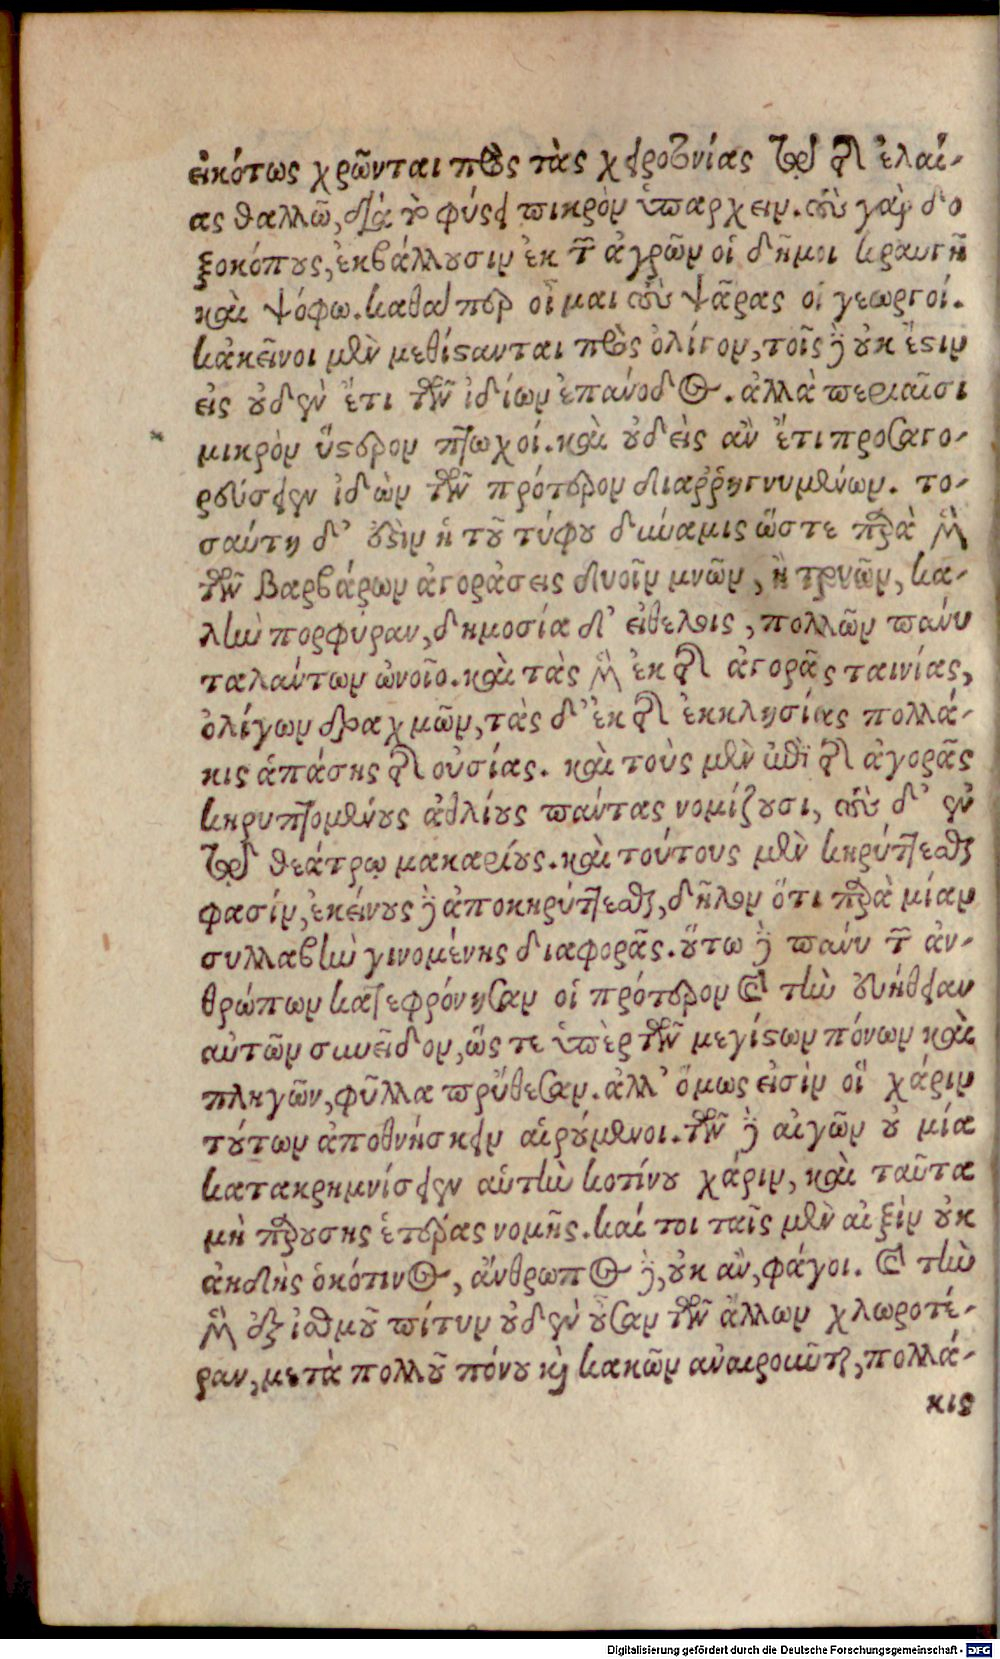 εἰκότως χρῶνται πρὸς τὰς χειροτονίας τῷ τῆς ἐλαί-
ας θαλλῷ, διὰ τὸ φύσει πικρὸν ὑπάρχειν. τοὺς γὰρ δο
ξοκόπους, ἐκβάλλουσιν ἐκ τῶν ἀγρῶν οἱ δῆμοι κραυγῇ
καὶ ψόφῳ. καθάπερ οἶμαι τοὺς ψᾶρας οἱ γεωργοί.
κἀκεῖνοι μὲν μεθίστανται πρὸς ὀλίγον, τοῖς δὲ οὐκ ἔστιν
εἰς οὐδὲν ἔτι τῶν ἰδίων ἐπάνοδος. ἀλλὰ περιίασι
μικρὸν ὕστερον πτωχοί. καὶ οὐδεὶς ἂν ἔτι προσαγο-
ρεύσειεν ἰδὼν τῶν πρότερον διαρρηγνυμένων. το-
σαύτη δ’ ἐστὶν ἡ τοῦ τύφου δύναμις ὥστε παρὰ μὲν
τῶν βαρβάρων ἀγοράσεις δυοῖν μνῶν, ἢ τριῶν, κα-
λὴν πορφύραν, δημοσίᾳ δ’ εἰ θέλοις, πολλῶν πάνυ
ταλάντων ὠνοῖο. καὶ τὰς μὲν ἐκ τῆς ἀγορᾶς ταινίας,
ὀλίγων δραχμῶν, τὰς δ’ ἐκ τῆς ἐκκλησίας πολλά-
κις ἁπάσης τῆς οὐσίας. καὶ τοὺς μὲν ἐπὶ τῆς ἀγορᾶς
κηρυττομένους ἀθλίους πάντας νομίζουσι, τοὺς δ’ ἐν
τῷ θεάτρῳ μακαρίους. καὶ τούτους μὲν κηρύττεσθαι
φασίν, ἐκείνους δὲ ἀποκηρύττεσθαι, δῆλον ὅτι παρὰ μίαν
συλλαβὴν γινομένης διαφορᾶς. οὕτω δὲ πάνυ τῶν ἀν-
θρώπων κατεφρόνησαν οἱ πρότερον καὶ τὴν εὐήθειαν
αὐτῶν συνεῖδον, ὥς τε ὑπὲρ τῶν μεγίστων πόνων καὶ
πληγῶν, φῦλλα προὔθεσαν. ἀλλ’ ὅμως εἰσὶν οἳ χάριν
τούτων ἀποθνήσκειν αἱρούμενοι. τῶν δὲ αἰγῶν οὐ μία
κατακρημνίσειεν αὑτὴν κοτίνου χάριν, καὶ ταῦτα
μὴ παρούσης ἑτέρας νομῆς. καί τοι ταῖς μὲν αἰξὶν οὐκ
ἀηδὴς ὁ κότινος, ἄνθρωπος δὲ, οὐκ ἂν, φάγοι. καὶ τὴν
μὲν ἐξ ἰσθμοῦ πίτυν οὐδὲν οὖσαν τῶν ἄλλων χλωροτέ-
ραν, μετὰ πολλοῦ πόνου καὶ κακῶν ἀναιροῦνται, πολλά-
κις
Digitalisierung gefördert durch die Deutsche Forschungsgemeinschaft - DFG